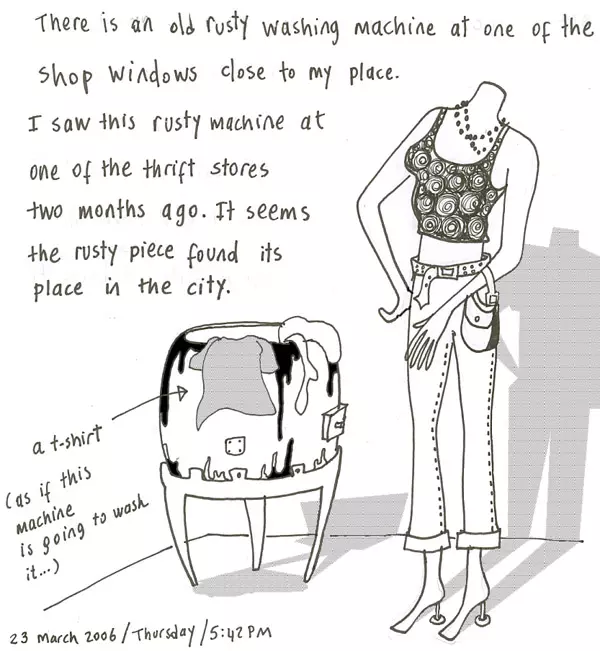 There is an old rusty washing machine at one of the
shop windows close to my place.
I saw this rusty machine at
one of the thrift stores
two months ago. It seems
the rusty piece found its
place in the city.
a t-shirt
(as if this
machine
is going to wash
it...)
23 March 2006/Thursday/5:42PM